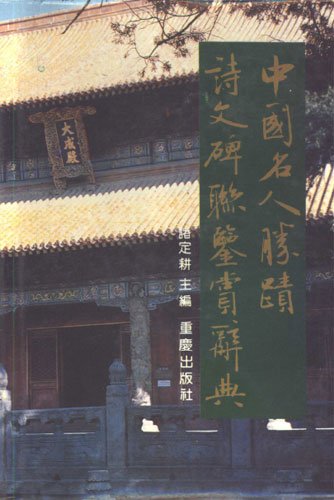 中國名人勝蹟
詩文碑聯鑒賞辭典
諸定耕 主編 重慶出版社
大成殿